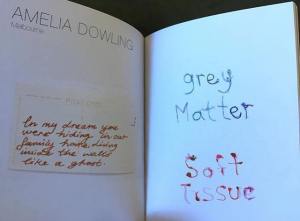 AMELIA DOWLING
Melbourne
POST CARD
In my dream you
were hiding in our
family home, living
inside the walls
like a ghost.
grey
Matter
Soft
Tissue